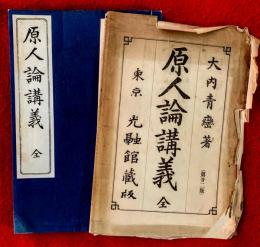 原人論講義 全
大内青巒著
原人論講義 全
東京 光融館蔵版